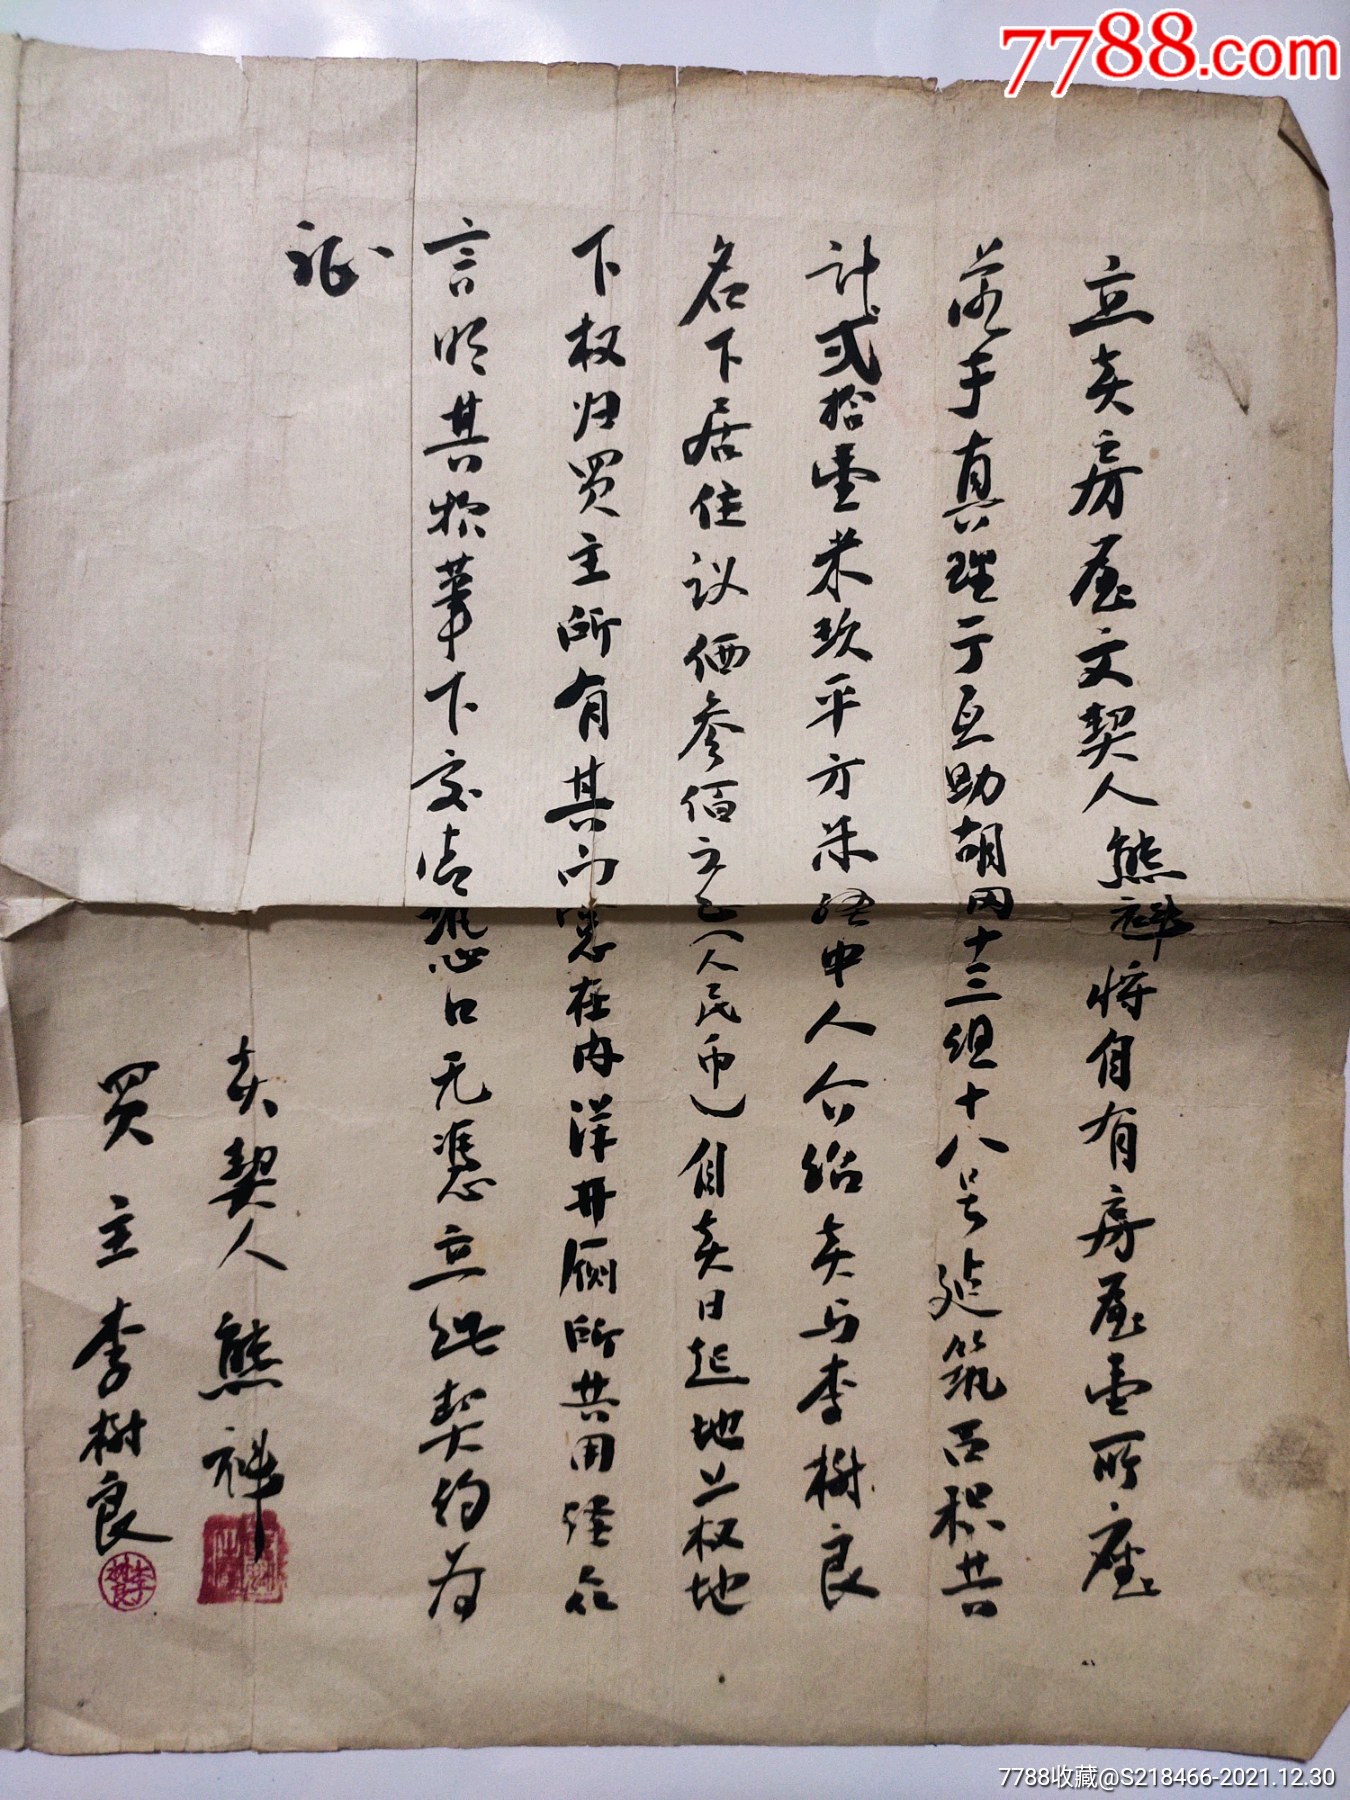 7788.com
立卖房屋文契人熊祥将自有房屋壹所座
落于真理亍互助胡同十三组十八号建筑面积共
计弍拾壹米玖平方米经中人介绍卖与李树良
名下居住议価叁佰元正(人民币)自卖日起地上权地
下权归买主所有其门窓在内洋井厕所共用经众
言明其款笔下交清恐口无凴立此契约为
证
卖契人 熊祥
买主 李树良
李树良
7788收藏@S218466-2021.12.30